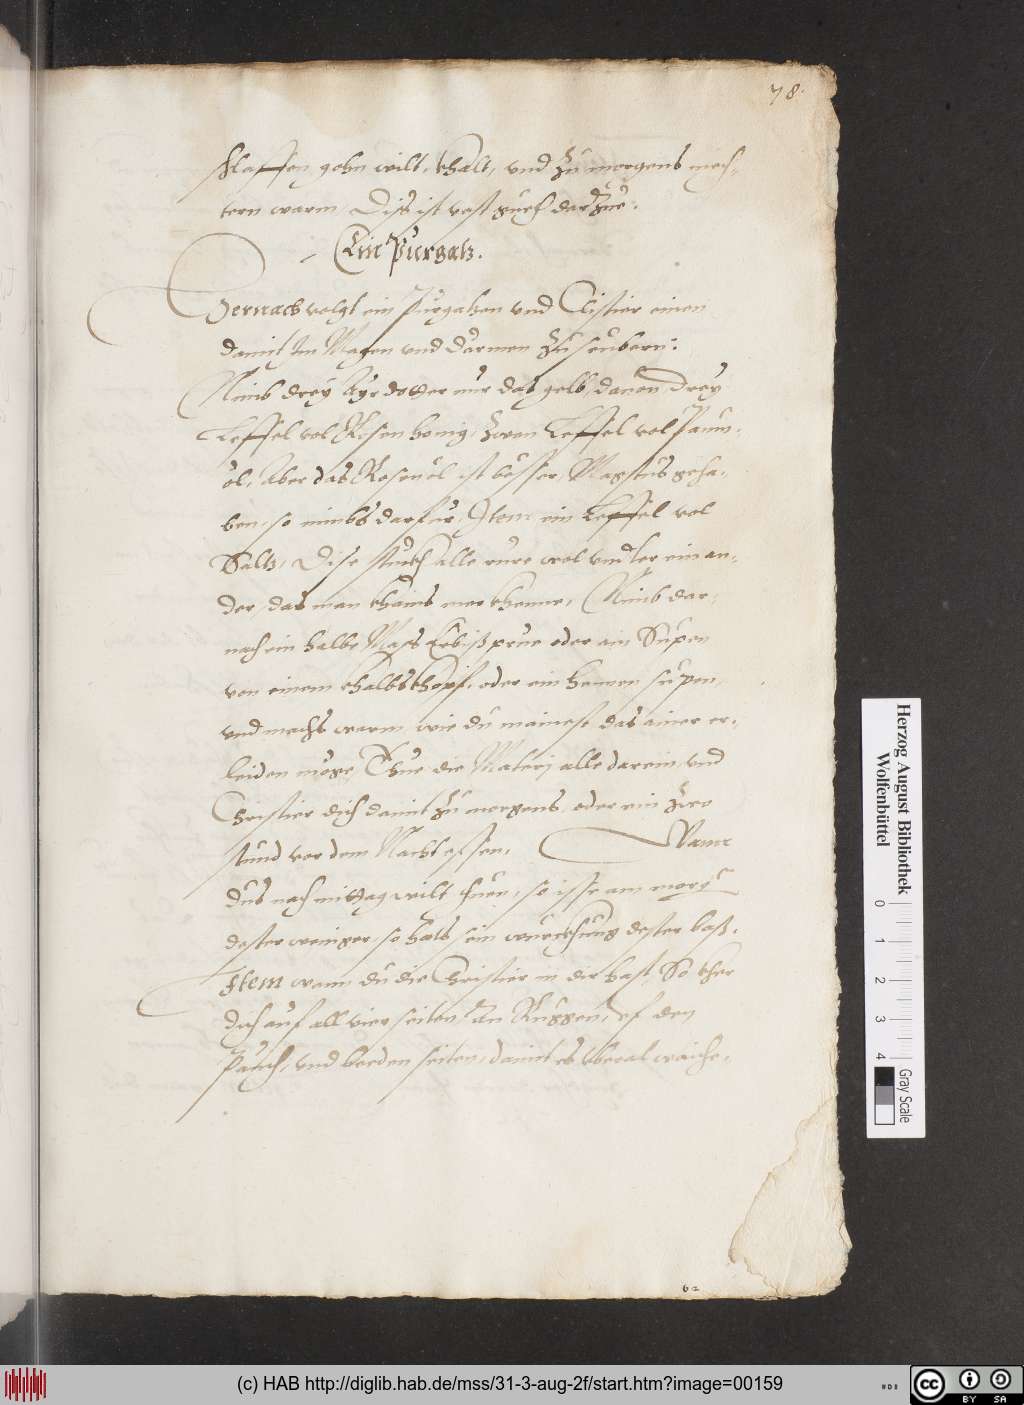 78.
schlaffen gehn wilt, khalt, und zu morgens nech-
tern warm, Diss ist vast guet darzue.
Ein Purgatz.
Hernach volgt ein Purgatzen und Clistier einen
damit Im Magen und Darmen zu seubern:
Nimb drey Ayrdotter nur das gelb, danon Drey
Leffel vol Rosenhonig, zwen Leffel vol Paum-
öl, Aber das Rosenöl ist besser, Magstus geha-
ben, so nimbs darfur, Item ein Leffel vol
Saltz, Dise stuckh alle rure wol undter ein an-
der, das man khains mer khenne, Nimb dar-
nach ein halbe Mass Erbißprue oder ain Supen
von einem khalbskhopf, oder ein hennen supen,
und machs warm, wie du mainest das ainer er-
leiden möge, Thue die Materj alle darein, und
Christier dich damit zu morgens, oder ein zwo
stund vor dem Nacht essen. Wann
dus nach mittag wilt thuen, so isse am morgn
dester weniger, so hats sein wurckhung dester bass.
Item wann du die Christier in dir hast, So kher
dich auf all vier seiten, Am Ruggen, uf den
Pauch, und beeden seiten, damit es uberal waiche.
62
Herzog August Bibliothek
Wolfenbüttel
0 1 2 3 4
Gray Scale
(c) HAB http://diglib.hab.de/mss/31-3-aug-2f/start.htm?image=00159
cc BY SA